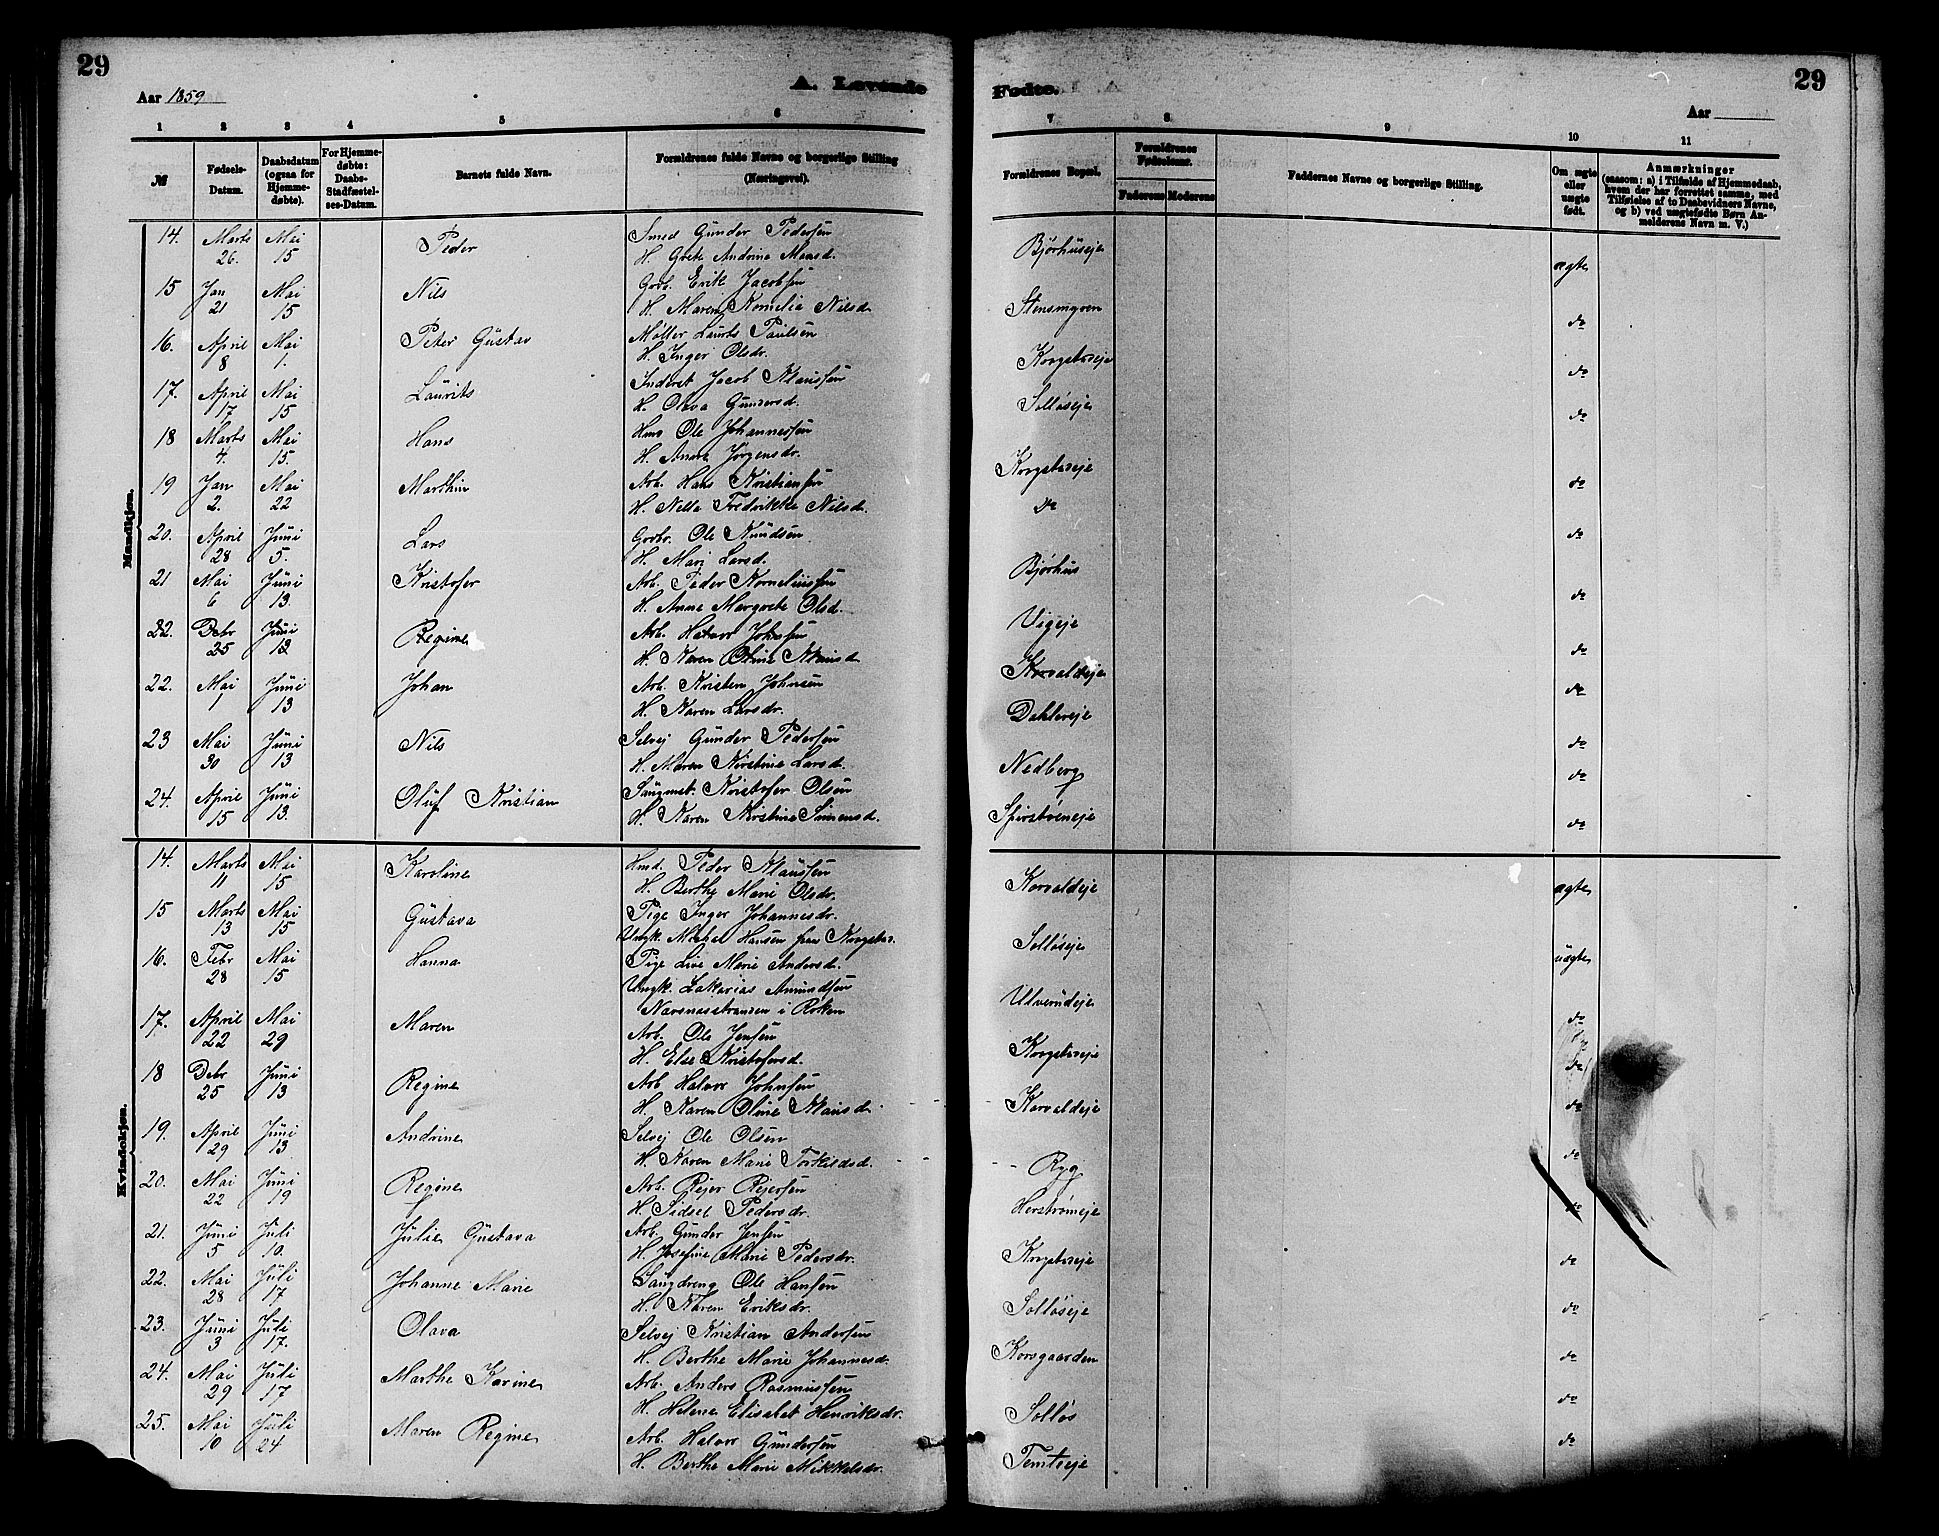 29
29
Aar 1859
A. Levende
Fødte.
Aar
1 2 3 4 5 6 7 8 9 10 11
№
Fødsels-Datum.
Daabsdatum (ogsaa for Hjemme-døbte).
For Hjemme-døbte: Daabs-Stadfæstel-ses-Datum.
Barnets fulde Navn.
Forældrenes fulde Navne og borgerlige Stilling (Næringsvei).
Forældrenes Bopæl.
Forældrenes Fødselsaar.
Faderens Moderens
Faddernes Navne og borgerlige Stilling.
Om ægte eller uægte født.
Anmærkninger
(saasom: a) i Tilfælde af Hjemmedaab, hvem der har forrettet samme, med Tilføielse af to Daabsvidners Navne, og b) ved uægtefødte Børn Anmelderens Navn m. V.)
Mandkjøn.
14. Marts 26. Mai 15 Peder Smed Gunder Pedersen Bjørhuseje ægte
H. Grete Andrine Maasd.
15 Jan 21 Mai 15 Nils Grbr. Erik Jacobsen Stensmyren do
H. Maren Kornelia Nilsd.
16. April 8 Mai 1. Peter Gustav Møller Laurts Paulsen Korgstaseje do
H. Inger Olsdr.
17. April 17 Mai 15 Laurits Inderst Jacob Klaussen Solløseje do
H. Olava Gundersd.
18 Marts 4. Mai 15. Hans Hms Ole Johannessen Korgstaseje do
H. Anne Jørgensdr.
19 Jan 2. Mai 22 Marthin Arb. Hans Kristiansen Do do
H. Nella Fredrikke Nilsd.
20. April 28 Juni 5. Lars Grbr. Ole Knudsen Bjørhus do
H. Mari Larsd.
21 Mai 6 Juni 13. Kristofer Arb. Peder Korneliussen Vigeje do
H. Anne Margrete Olsd.
22. Debr 25 Juni 13 Regine Arb. Halvor Johnsen Korvaldseje do
H. Karen Oline Klausd
22. Mai 1 Juni 13 Johan Arb. Kristen Johnsen Dahlereje do
H. Karen Larsdr.
23 Mai 30 Juni 13 Nils Selvej Gunder Pedersen Nedberg do
H. Maren Kirstine Larsd.
24. April 15 Juni 13. Oluf Kristian Saugmst. Kristofer Olsen do
H. Karen Kirstine Simensd.
Kvindekjøn.
14. Marts 11 Mai 15 Karoline Hmd. Peder Klaussen Korvaldeje ægte
H. Berthe Marie Olsdr.
15 Marts 13 Mai 15 Gustava Pige Inger Johannesdr. Solløseje uægte
Ungk. Mikkel Hansen fra Korgstas.
16. Febr 28 Mai 15 Hanna Pige Live Marie Andersd. Ulverudeje do
Ungk. Zakarias Amundsen
Narsnesstranden i Røken
17. April 22 Mai 29 Maren Arb. Ole Jensen Korgstaseje do
H. Else Kristofersd.
18 Debr 25 Juni 13 Regine Arb. Halvor Johnsen Korvaldeje do
H. Karen Oline Klausd.
19. April 29 Juni 13 Andrine Selvej Ole Olsen Ryg do
H. Karen Marie Torkildsd.
20. Mai 22 Juni 19 Regine Arb. Rejer Rejersen Herstrømeje do
H. Sidsel Pedersdr.
21. Juni 5 Juli 10. Julie Gustava Arb. Gunder Jensen Korgstaseje do
H. Josefine Marie Pedersdr.
22. Mai 28 Juli 17 Johanne Marie Saugdreng Ole Hansen Solløseje do
H. Karen Eriksdr.
23. Juni 3 Juli 17. Olava Selvej Kristian Andersen Korsgaarden do
H. Berthe Marie Johannesd.
24. Mai 29 Juli 17 Marthe Karine Arb. Anders Rasmussen Solløs do
H. Helene Elisabet Henriksdr.
25. Mai 10 Juli 24 Maren Regine Arb. Halvor Gundersen Temteeje do
H. Berthe Marie Mikkelsdr.